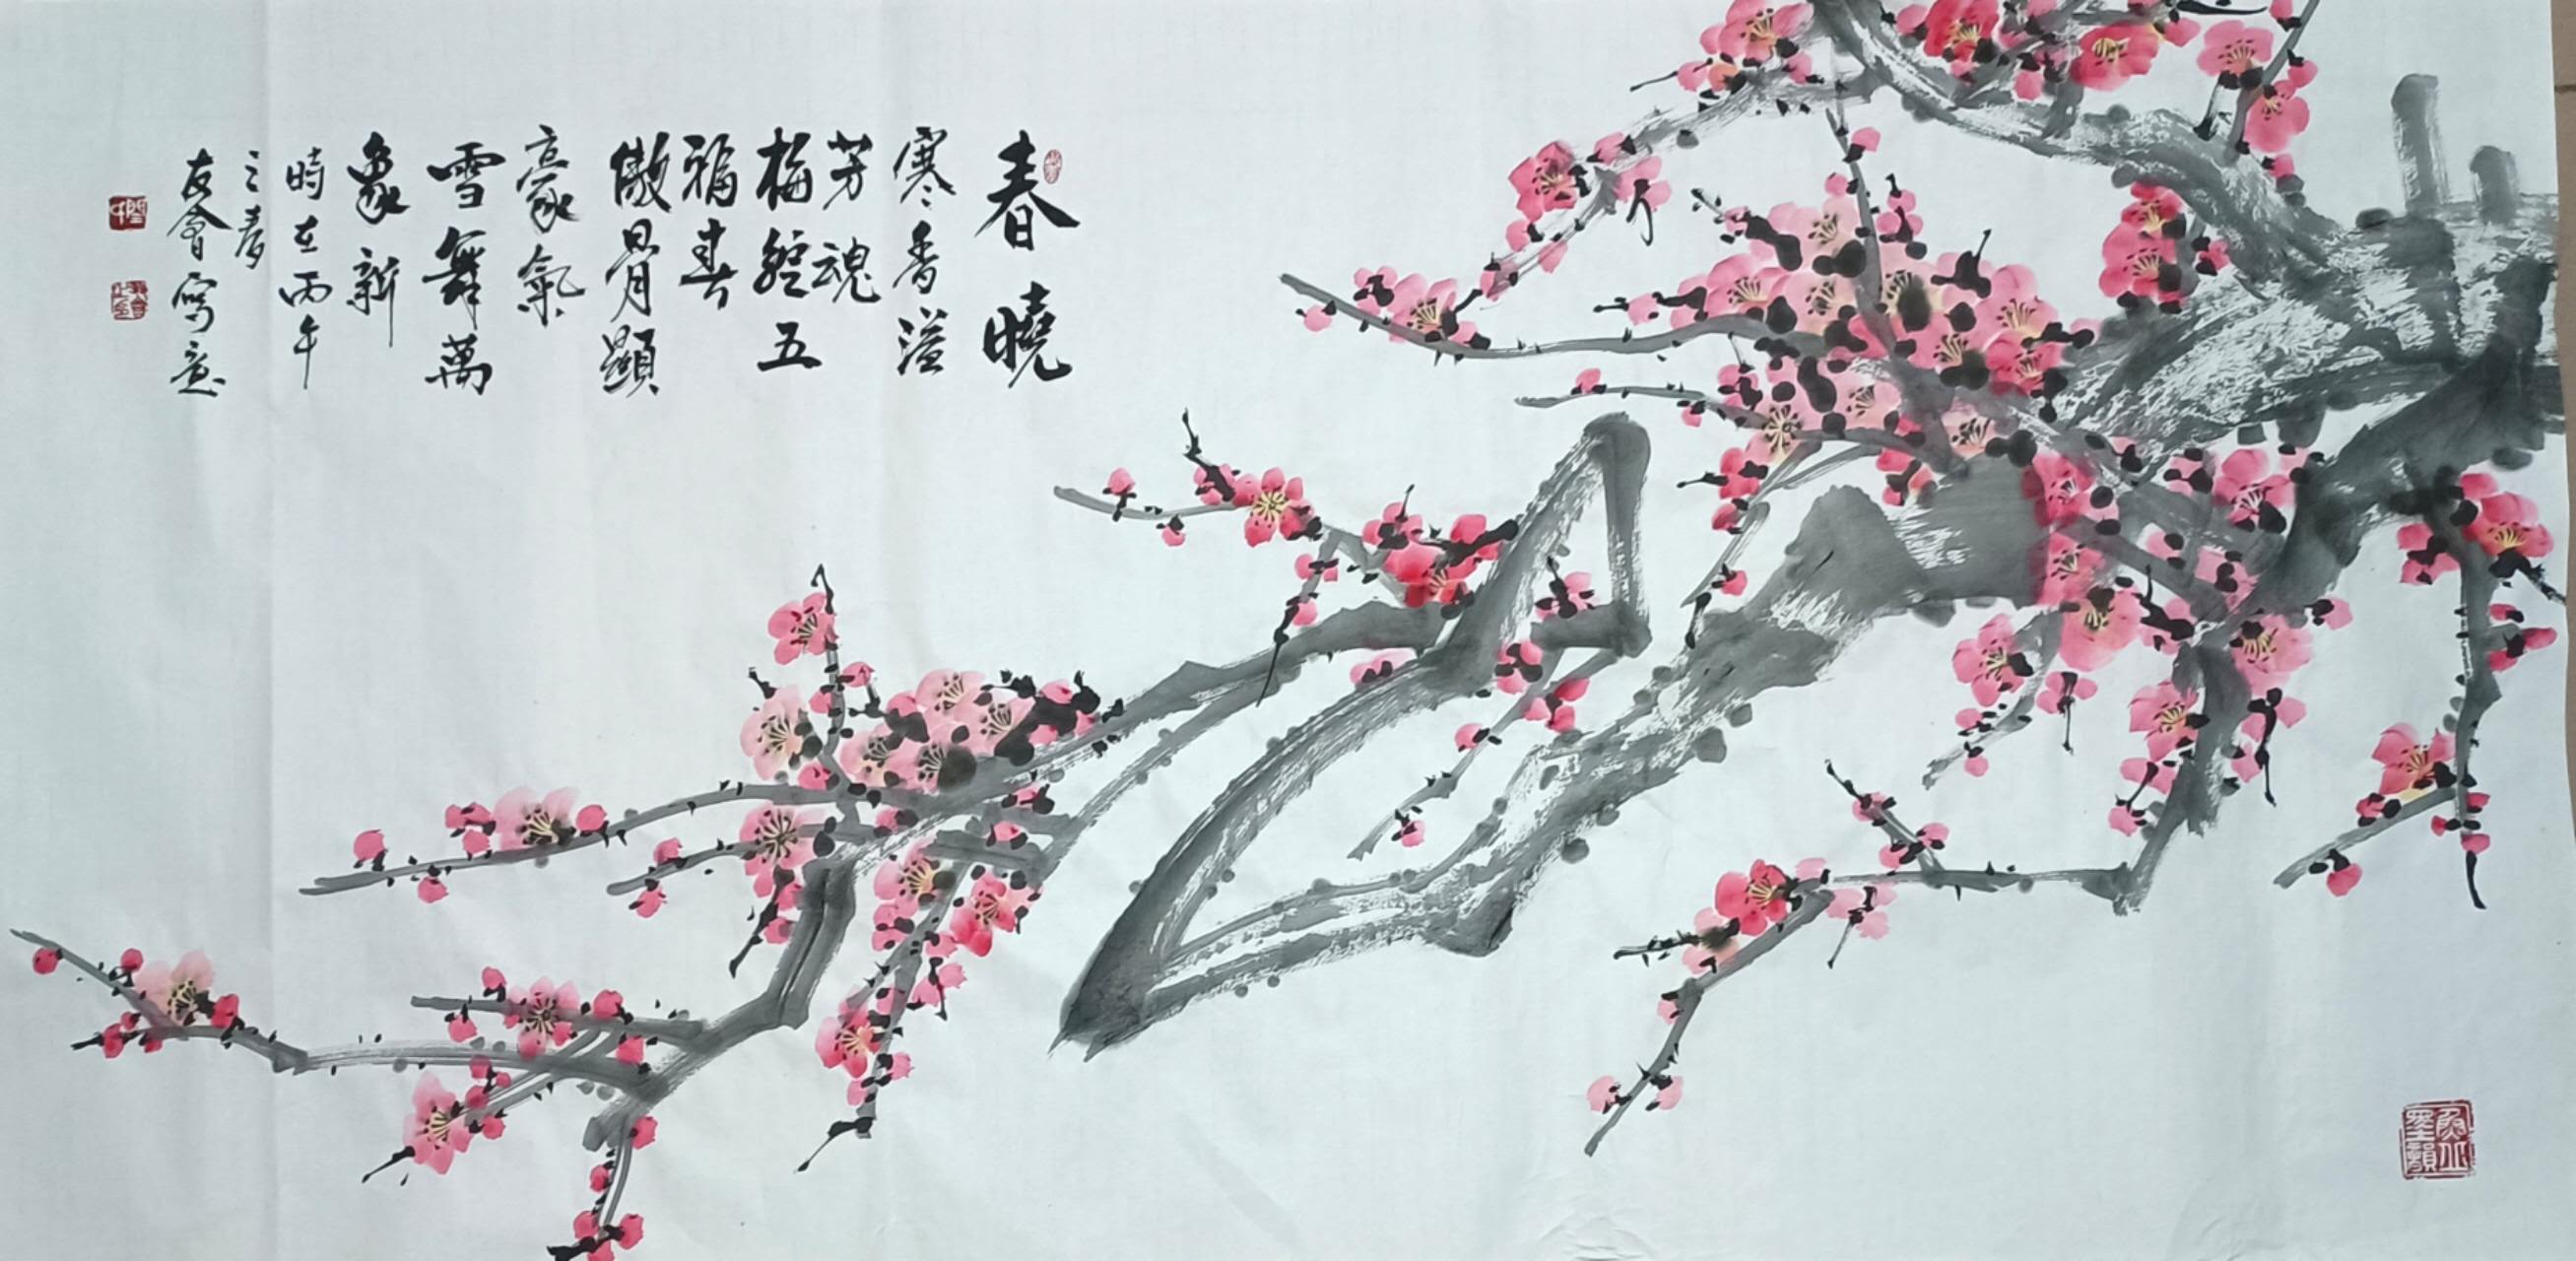 春曉
寒香溢
芳魂
梅綻五
福春
傲骨顯
豪氣
雪舞萬
象新
時在丙午
之春
友會寫意